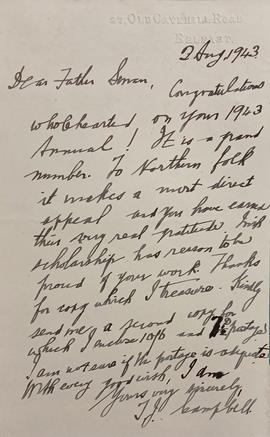 27, OLD CAVEHILL ROAD,
BELFAST.
2 Aug 1943.
Dear Father Senan, Congratulations
wholehearted on your 1943
Annual! It is a grand
number. To Northern folk
it makes a most direct
appeal and you have earned
their very real gratitude. Irish
scholarship has reason to be
proud of your work. Thanks
for copy which I treasure. Kindly
send me a second copy for
which I enclose 10/6 and postage
I am not sure if the postage is adequate
With every good wish, I am
Yours very sincerely
T.J. Campbell.